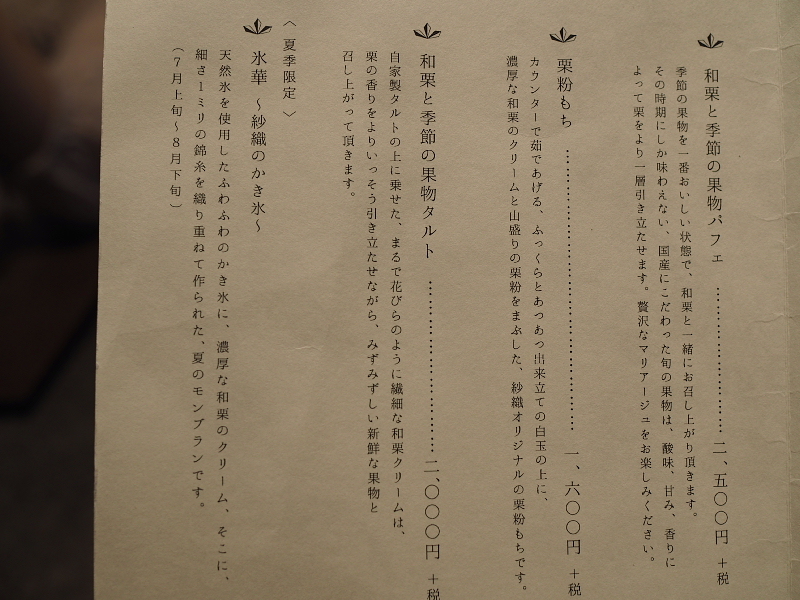 和栗と季節の果物パフェ ……………… 二、五〇〇円 +税
季節の果物を一番おいしい状態で、和栗と一緒にお召し上がり頂きます。
その時期にしか味わえない、国産にこだわった旬の果物は、酸味、甘み、香りに
よって栗をより一層引き立たせます。贅沢なマリアージュをお楽しみください。
栗粉もち ……………………………… 一、六〇〇円 +税
カウンターで茹であげる、ふっくらとあつあつ出来立ての白玉の上に、
濃厚な和栗のクリームと山盛りの栗粉をまぶした、紗織オリジナルの栗粉もちです。
和栗と季節の果物タルト ………………… 二、〇〇〇円 +税
自家製タルトの上に乗せた、まるで花びらのように繊細な和栗クリームは、
栗の香りをよりいっそう引き立たせながら、みずみずしい新鮮な果物と
召し上がって頂きます。
〈夏季限定〉
氷華 〜紗織のかき氷〜
天然氷を使用したふわふわのかき氷に、濃厚な和栗のクリーム、そこに、
細さ1ミリの錦糸を織り重ねて作られた、夏のモンブランです。
(7月上旬〜8月下旬)